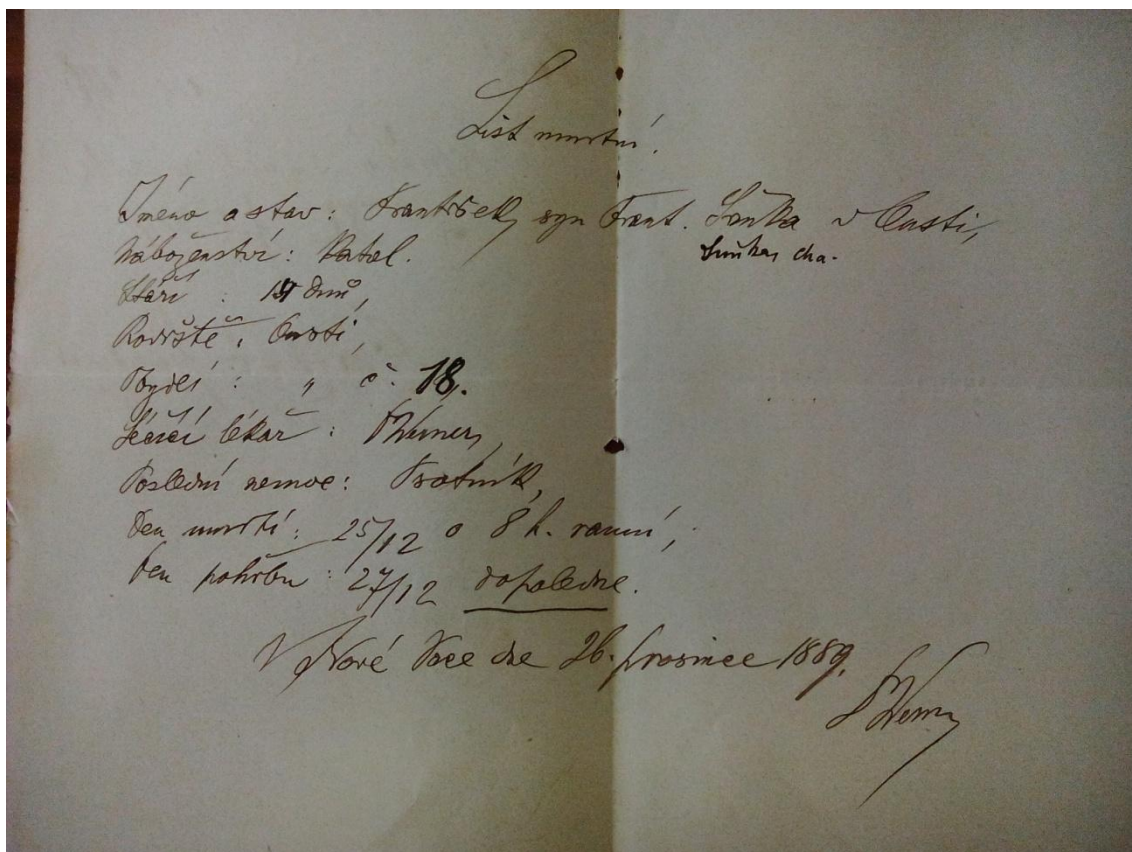 List úmrtní.
Jméno a stav: František, syn Frant. Suka v Oustí,
náboženství: Katol.
Stáří : dnů,
Rodiště: Oustí,
Bydlí : " č. 18.
Léčící lékař :
Poslední nemoc: Psotník,
Den úmrtí: 25/12 o 8 h. ranní;
Den pohřbu: 27/12 dopoledne.
V Nové dne 26. prosince 1889.